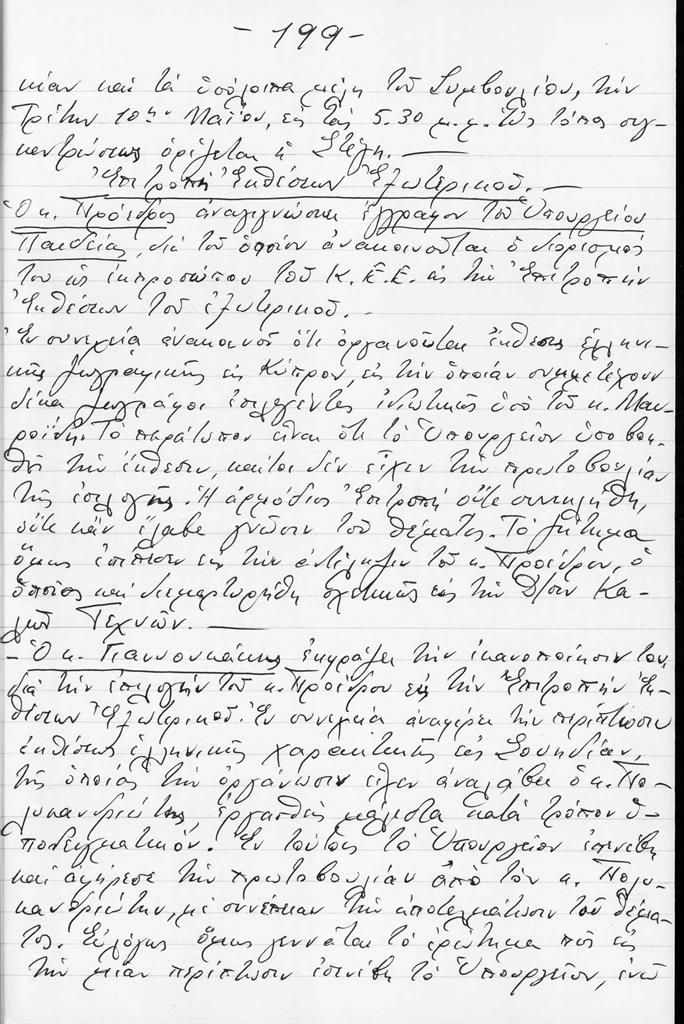 - 199 -
κίαν καί τά ὑπόλοιπα μέλη τοῦ Συμβουλίου, τήν
Τρίτην 10ην Μαΐου, εἰς τάς 5.30 μ.μ. Ὡς τόπος συγ-
κεντρώσεως ὁρίζεται ἡ Στέγη. —
Ἐπιτροπή Ἐκθέσεων Ἐξωτερικοῦ. —
Ὁ κ. Πρόεδρος ἀναγιγνώσκει ἔγγραφον τοῦ Ὑπουργείου
Παιδείας, διά τοῦ ὁποίου ἀνακοινοῦται ὁ διορισμός
του ὡς ἐκπροσώπου τοῦ Κ.Ε.Ε. εἰς τήν Ἐπιτροπήν
Ἐκθέσεων τοῦ ἐξωτερικοῦ. —
Ἐν συνεχείᾳ ἀνακοινοῖ ὅτι ὀργανοῦται ἔκθεσις ἑλληνι-
κῆς ζωγραφικῆς εἰς Κύπρον, εἰς τήν ὁποίαν συμμετέχουν
δέκα ζωγράφοι ἐπιλεγέντες ἰδιωτικῶς ὑπό τοῦ κ. Μαυ-
ροΐδη. Τό παράτυπον εἶναι ὅτι τό Ὑπουργεῖον ὑποβοη-
θεῖ τήν ἔκθεσιν, καίτοι δέν εἶχεν τήν πρωτοβουλίαν
τῆς ἐπιλογῆς. Ἡ ἁρμόδιος Ἐπιτροπή οὔτε συνεκλήθη,
οὔτε κἄν ἔλαβε γνῶσιν τοῦ θέματος. Τό ζήτημα
ὅμως ἐπέπεσεν εἰς τήν ἀντίληψιν τοῦ κ. Προέδρου, ὁ
ὁποῖος καί διεμαρτυρήθη σχετικῶς εἰς τήν Δ/σιν Κα-
λῶν Τεχνῶν. —
- Ὁ κ. Γιαννουκάκης ἐκφράζει τήν ἱκανοποίησίν του
διά τήν ἐπιλογήν τοῦ κ. Προέδρου εἰς τήν Ἐπιτροπήν Ἐκ-
θέσεων Ἐξωτερικοῦ. Ἐν συνεχείᾳ ἀναφέρει τήν περίπτωσιν
ἐκθέσεως ἑλληνικῆς χαρακτικῆς εἰς Σουηδίαν,
τῆς ὁποίας τήν ὀργάνωσιν εἶχεν ἀναλάβει ὁ κ. Πο-
λυκανδριώτης, ἐργασθείς μάλιστα κατά τρόπον ὑ-
ποδειγματικόν. Ἐν τούτοις τό Ὑπουργεῖον ἐπενέβη
καί ἀφήρεσε τήν πρωτοβουλίαν ἀπό τόν κ. Πολυ-
κανδριώτην, μέ συνέπειαν τήν ἀποτελμάτωσιν τοῦ θέμα-
τος. Εὐλόγως ὅμως γεννᾶται τό ἐρώτημα πῶς εἰς
τήν μίαν περίπτωσιν ἐπενέβη τό Ὑπουργεῖον, ἐνῶ